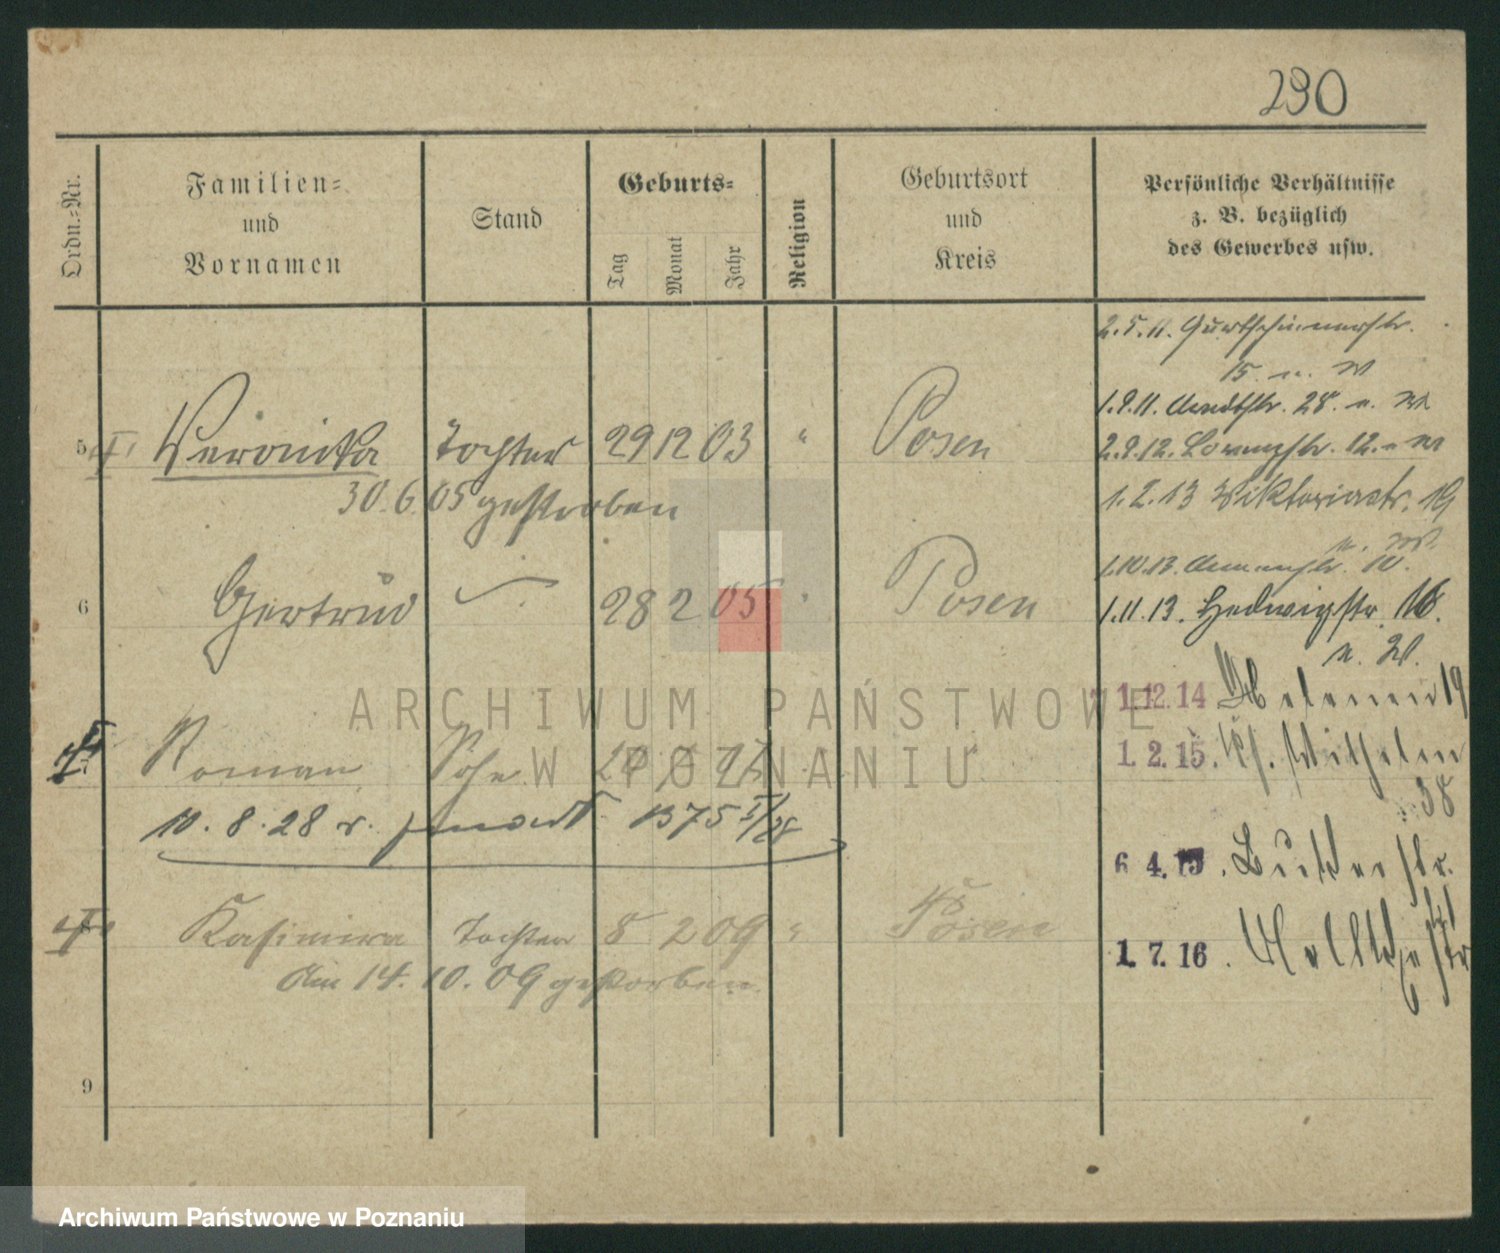 230
Ordn.-Nr.
Familien-
und
Vornamen
Stand
Geburts-
Tag
Monat
Jahr
Religion
Geburtsort
und
Kreis
Persönliche Verhältnisse
z. B. bezüglich
des Gewerbes usw.
2.5.11. Gurtschinerstr.
15. n. W
5 Veronika Tochter 29 12 03 " Posen
30.6.05 gestorben
1.9.11. Arndtstr. 28. n. W
2.9.12. Lorenzstr. 12. n W
1.2.13 Viktoriastr. 19
n. W.
6 Gertrud 28 2 05 " Posen
1.10.13. 10.
1.11.13. Hedwigstr. 16.
n. W.
ARCHIWUM PAŃSTWOWE
W POZNANIU
1.12.14 Helenen 19
7 Roman Sohn
1.2.15. Wilhelm
38
10.8.28 r. 1375 I/28
6 4.15. Bukerstr.
8 Kasimira Tochter 8 2 09 " Posen
am 14.10.09 gestorben.
1.7.16. Moltkestr
9
Archiwum Państwowe w Poznaniu